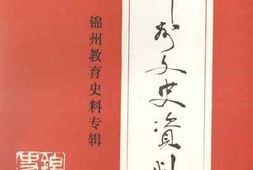 州文史资料
锦州教育史料专辑